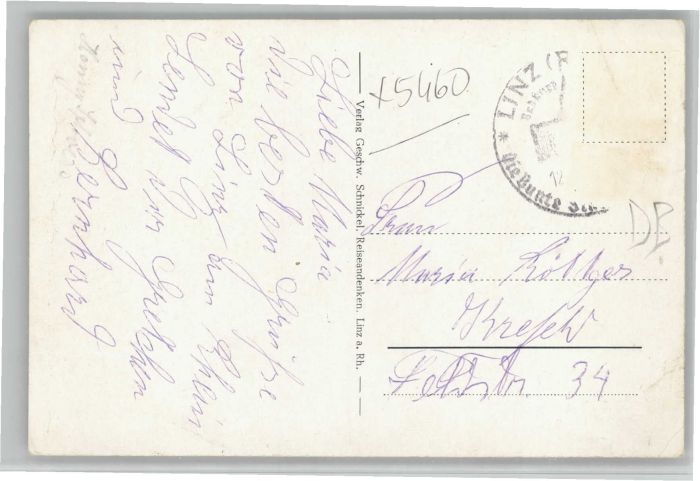 Liebe Maria
die besten Grüße
von Linz am Rhein
sendet dir Gretchen
und Bernhard
Verlag Geschw. Schnickel, Reiseandenken, Linz a. Rh.
x5460
* LINZ (R
die bunte
12
DP.
Frau
Maria Röttger
34